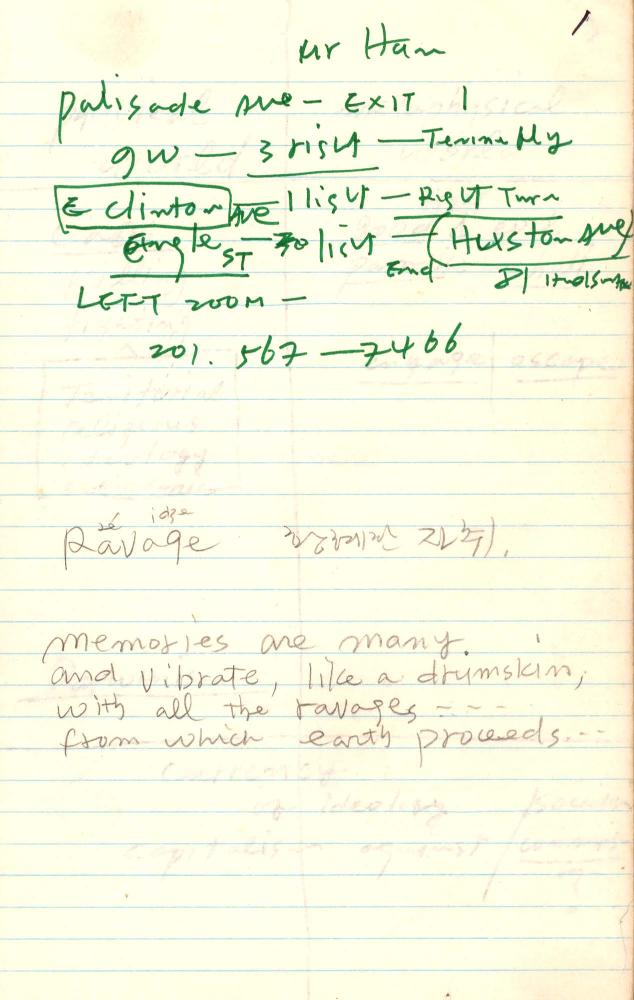 1
Mr Han
palisade Ave — EXIT 1
gw — 3 right — Teninefly
E clinton AVE — 1 light — Right Turn
Engle ST — light — Huxston Ave
End
LEFT 200M —
201. 567 — 7466
Ravage
memories are many.
and vibrate, like a drumskin,
with all the ravages - - -
from which earth proceeds...